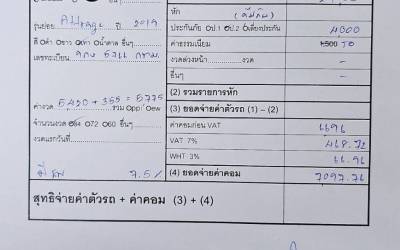 หัก
รุ่นย่อย Attrage ปี 2019
ประกันภัย ป.1 ป.2 เลี่ยงประกัน 4000
สี ดำ ขาว เทา น้ำตาล อื่นๆ
ค่าธรรมเนียม 1,500 50
เลขทะเบียน กทม.
งวดล่วงหน้า งวด -
อื่นๆ -
(2) รวมรายการหัก
ค่างวด 5420 + 355 = 5775
(3) ยอดจ่ายค่าตัวรถ (1) - (2)
จำนวนงวด 84 72 60 อื่นๆ
ค่าคอมก่อน VAT
งวดแรกวันที่
VAT 7% 468.72
WHT 3%
7.5%
(4) ยอดจ่ายค่าคอม 7097.76
สุทธิจ่ายค่าตัวรถ + ค่าคอม (3) + (4)